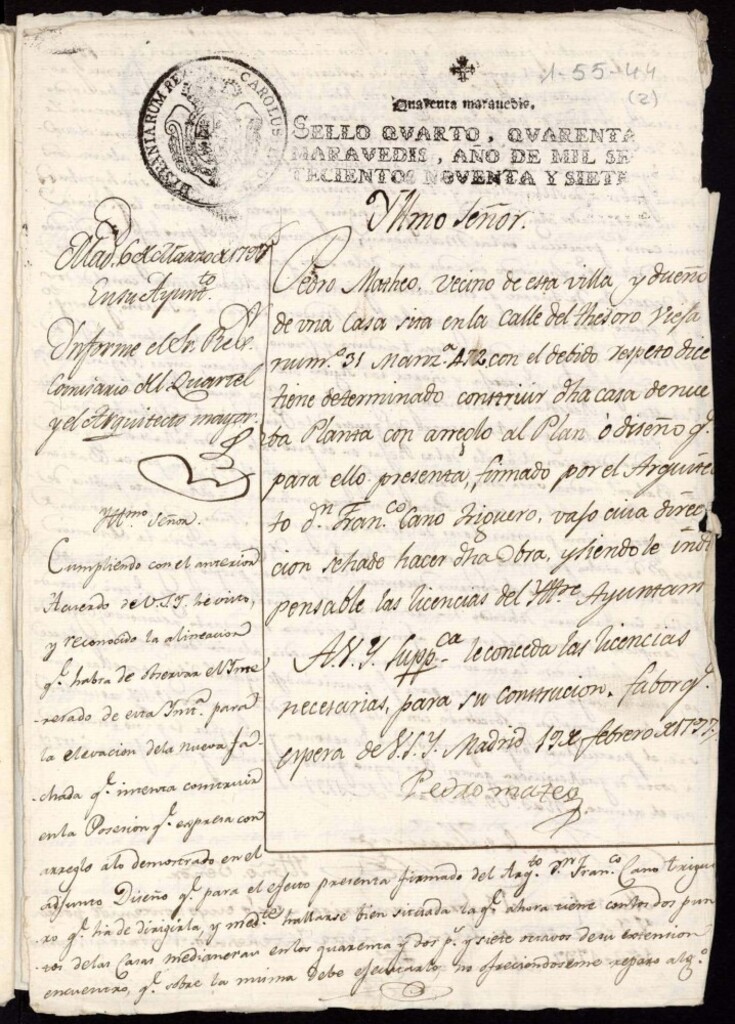 1-55-44
(2)
HISPANIARUM REX CAROLUS
Quarenta maravedis.
SELLO QVARTO, QVARENTA
MARAVEDIS, AÑO DE MIL SE
TECIENTOS NOVENTA Y SIETE
Yllmo Señor.
Pedro Matheo, vecino de esta villa y dueño
de vna Casa sita en la Calle del Thesoro Vieja
num.º 31 Manz.ª 472 con el debido respeto dice
tiene determinado construir dha casa de nue
ba Planta con arreglo al Plan ò diseño q.e
para ello presenta, firmado por el Arquite
to d.n Fran.co Cano Triguero, vajo cuia direc
cion se ha de hacer dha Obra, y siendole indi
pensable las licencias del Yll.re Ayuntam
A.V.Y. Supp.ca le conceda las licencias
necesarias, para su construcion, fabor q.e
espera de V.S.Y. Madrid 19 de febrero de 1797.
Pedro mateo
Mad. 6 de Marzo de 1797
En su Ayunt.to
Informe el Sr. Rex.
Comisario del Quartel
y el Arquitecto mayor.
Yll.mo Señor.
Cumpliendo con el anterior
Acuerdo de V.S.Y. he visto,
y reconocido la alineacion
q.e habra de observar el Ynte
resado de esta Ynst.a para
la elevacion de la nueva fa-
chada q.e intenta construir
en la Posesion q.e expresa con
arreglo a lo demostrado en el
adjunto Diseño q.e para el efecto presenta firmado del Arq.to D.n Fran.co Cano Trigue
ro q.e ha de dirigirla, y med.te hallarse bien situada la q.e ahora tiene con los dos pun
tos de las Casas medianeras en los quarenta y dos p.s y siete octavos de su extension
encuentro, q.e sobre la misma debe ejecutarlo no ofreciendoseme reparo alg.o